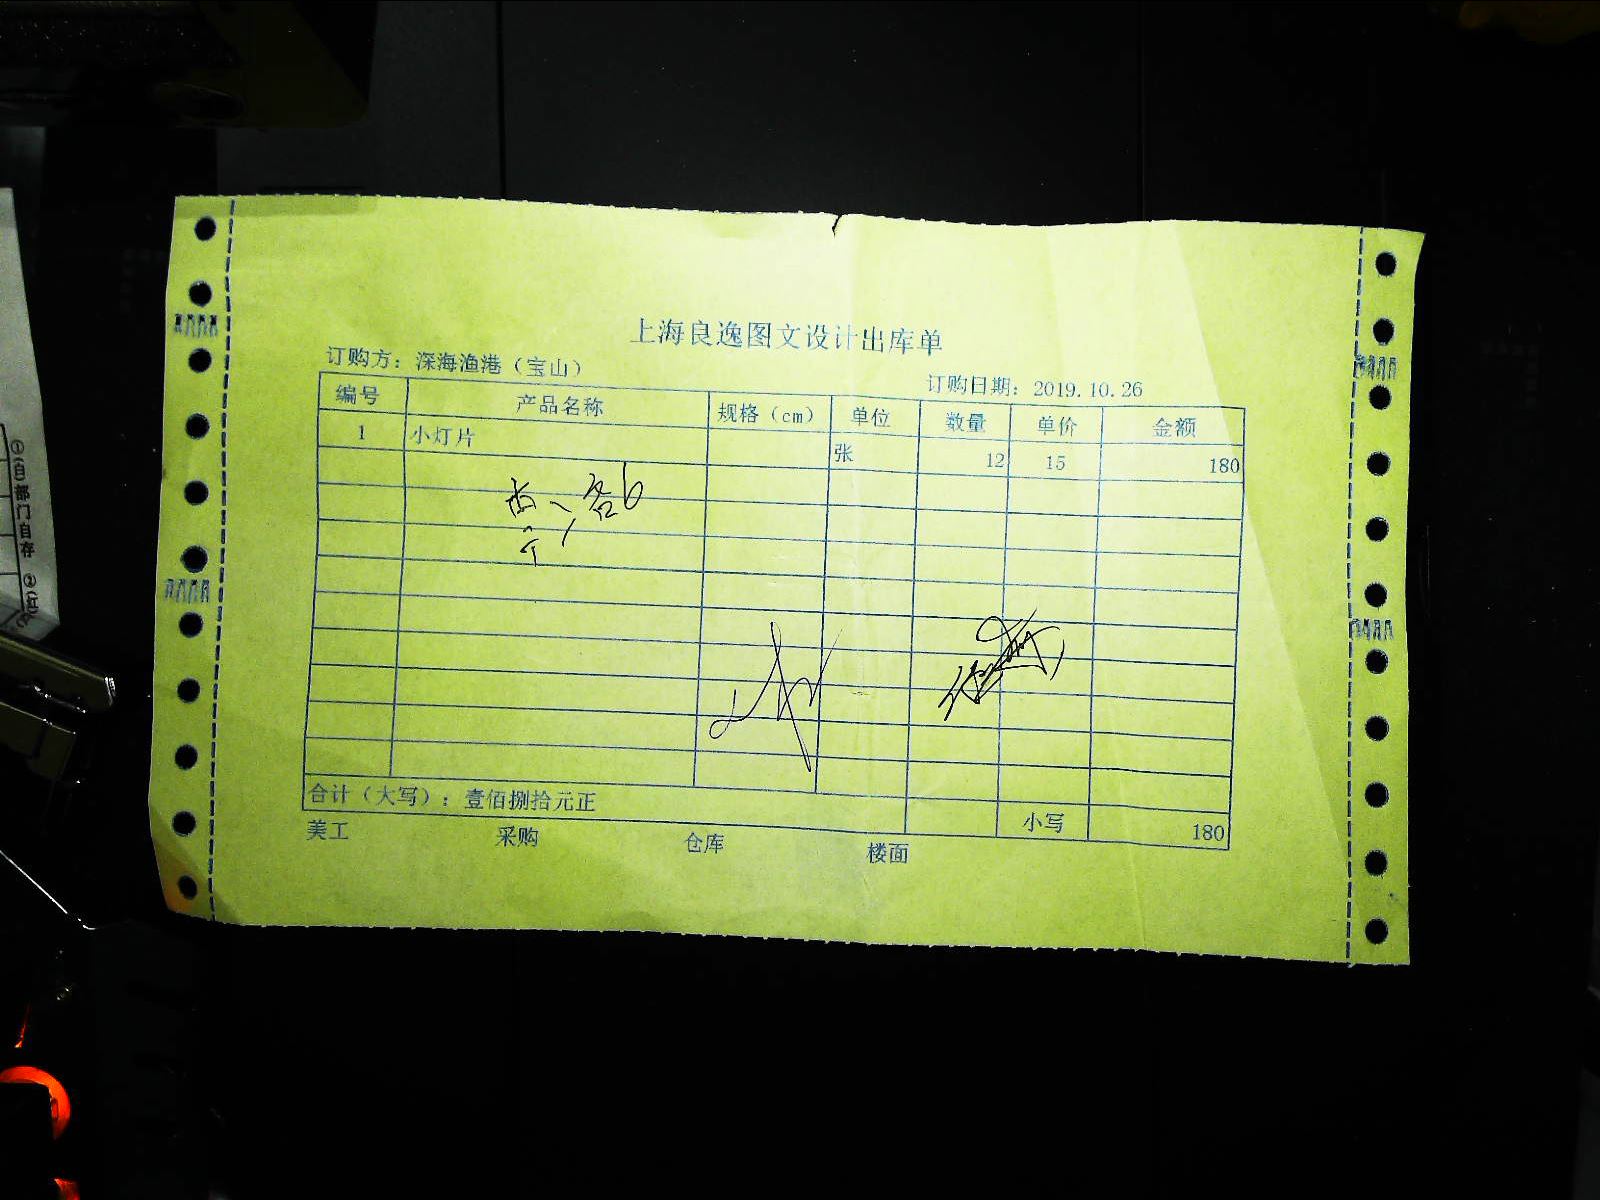 上海良逸图文设计出库单
订购方：深海渔港（宝山）
订购日期：2019.10.26
编号 产品名称 规格（cm） 单位 数量 单价 金额
1 小灯片 张 12 15 180
各6
合计（大写）：壹佰捌拾元正 小写 180
美工 采购 仓库 楼面
①(白)部门自存 ②(红)